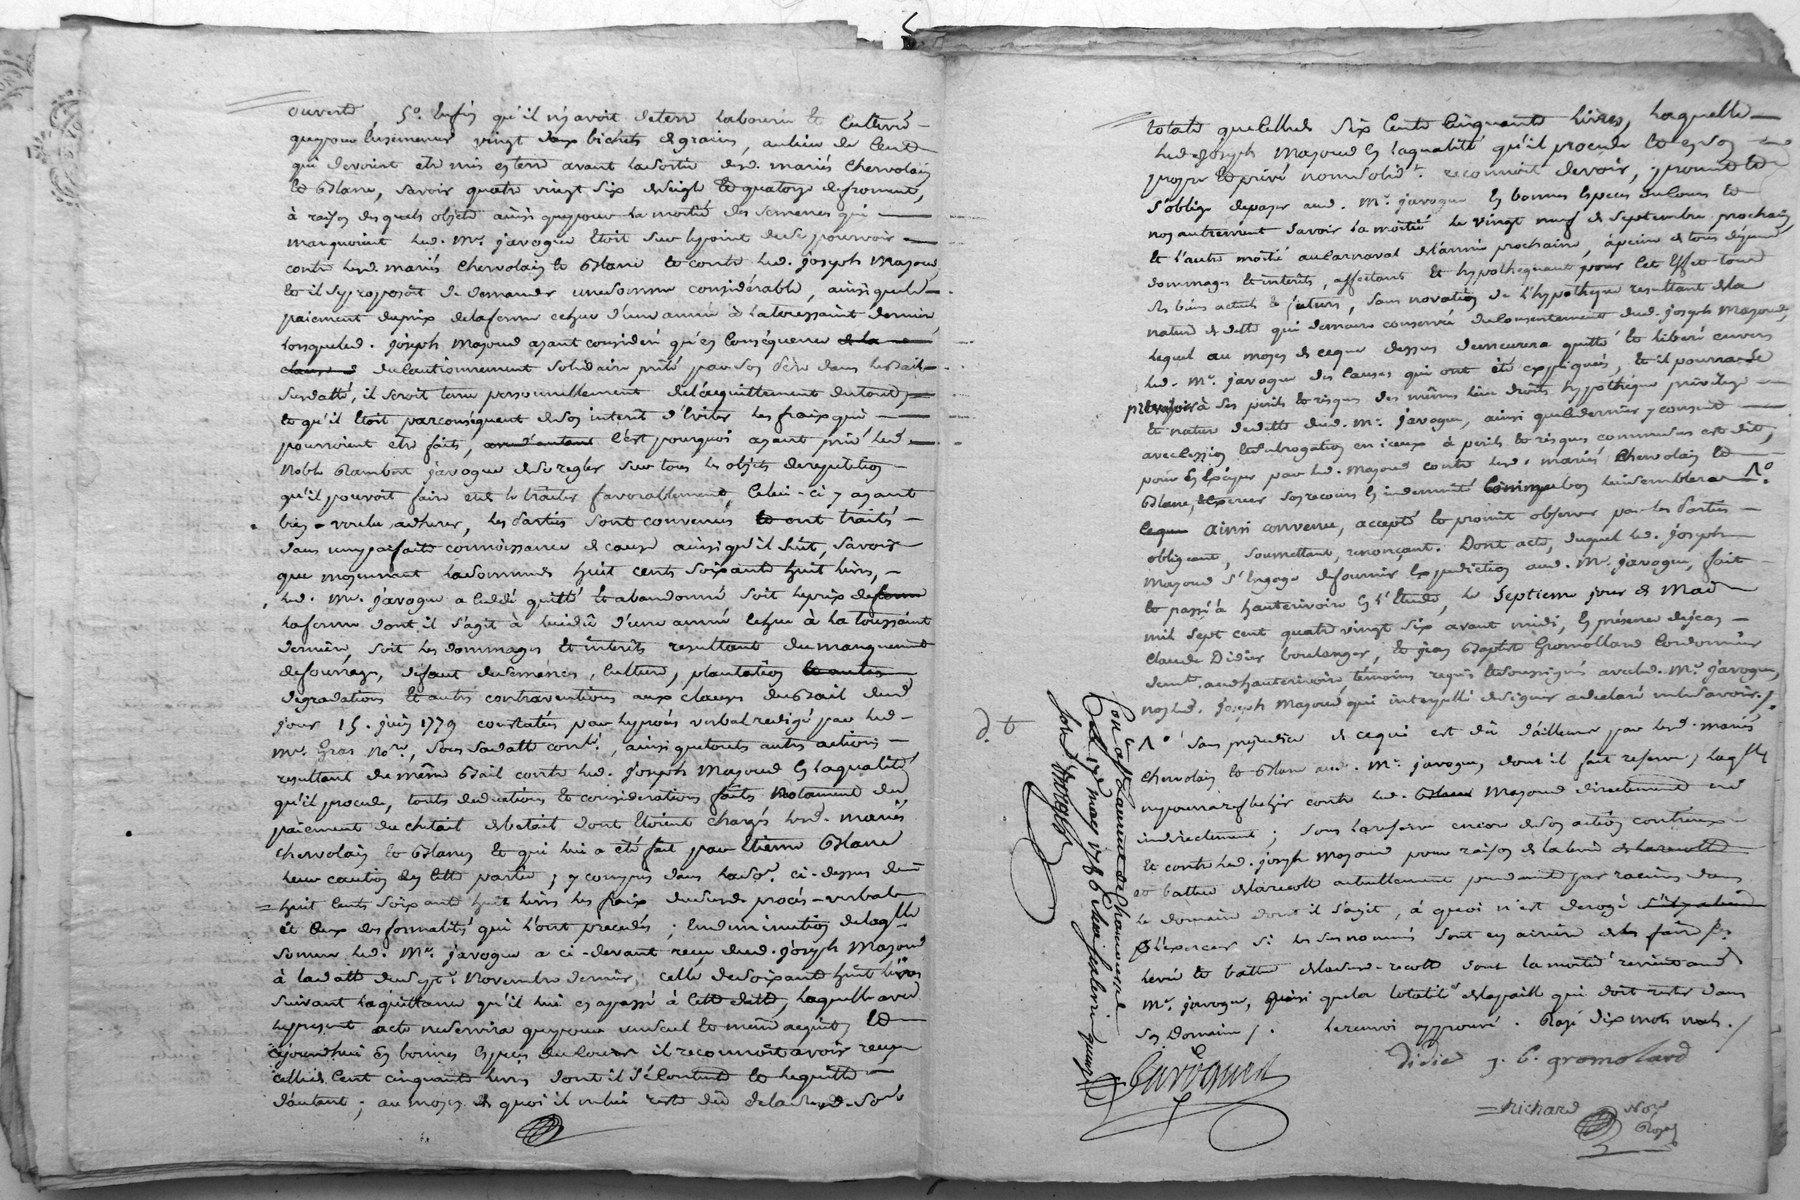 ouverte, 5°. Enfin qu'il n'y avoit de terre labourée et cultivé
que pour l'usemence vingt deux bichets de grains, au lieu de Cent
qui devoient être mis en terre avant la sortie desd. mariés Chervolain
et Blanc, savoir quatre vingt six de seigle et quatorze de froment,
à raison des quels objets ainsi que pour la moitié des semences qui
manquoient led. Mr. javogue étoit sur le point de se pourvoir
contre lesd. mariés Chervolain et Blanc et contre led. joseph Majoud
et il se proposoit de demander une somme considérable, ainsi que le
paiement du prix de la ferme échue d'une année à la toussaint dernier,
lorsque led. joseph Majoud ayant considéré qu'en conséquence de la
clause du cautionnement solidaire prêté par son père dans led. bail
susdatté, il seroit tenu personnellement de l'acquittement du tout,
et qu'il étoit par conséquent de son interêt d'éviter les fraix qui
pourroient être faits, c'est pourquoi ayant prié led.
Noble Rambert javogue de se regler sur tous les objets de repetition
qu'il pouvoit faire et de le traiter favorablement, Celui-ci y ayant
bien voulu adherer, les Parties sont convenues et ont traité
dans une parfaite connoissance de cause ainsi qu'il suit, savoir
que moyennant la somme de huit cents soixante huit livres,
led. Mr. javogue a cédé quitté et abandonné soit le prix de ferme
la ferme dont il s'agit à lui dû d'une année échue à la toussaint
dernière, soit les dommages et interêts resultant du manquement
de fourrage, défaut de semences, culture, plantation et autres
dégradations et autres contraventions aux clauses du Bail dud.
jour 15. juin 1779 constatés par le procès verbal redigé par led.
Mr. Gras Nore., sous sa datte contlé., ainsi que toutes autres actions
resultant du même Bail contre led. joseph Majoud en la qualité
qu'il procede, toutes deductions et considerations faites Notament du
paiement du cheptail de betail dont étoient chargés lesd. mariés
Chervolain et Blanc et qui lui a été fait par Etienne Blanc
leur caution en cette partie; y compris dans lad. so. ci-dessus de
huit cents soixante huit livres les fraix du susd. procès-verbal
et ceux des formalités qui l'ont precedés; En diminution de laqlle
somme led. Mr. javogue a ci-devant reçu dud. joseph Majoud
à la datte du sept Novembre dernier celle de soixante huit livres
suivant la quittance qu'il lui en a passé à cette datte, laquelle avec
le present acte ne servira que pour un seul et même acquit, et
aujourd'hui en bonnes especes de cours il reconnoit avoir reçu
celle de cent cinquante livres dont il se contente et le quitte
d'autant; au moyen de quoi il ne lui reste dû de la susd. so.
totale que celle de six cents cinquante livres, laquelle
led. joseph Majoud en la qualité qu'il procede et en son
propre et privé nom solidt. reconnoit devoir, promet et
s'oblige de payer aud. Mr. javogue en bonnes especes de cours et
non autrement savoir la moitié le vingt neuf de septembre prochain,
et l'autre moitié au carnaval de l'année prochaine, à peine de tous dépens
dommages et interêts, affectant et hypothequant pour cet effet tous
ses biens actuels et futurs, sans novation de l'hypotheque resultant de la
nature de dette qui demeure conservée du consentement dud. joseph Majoud,
lequel au moyen de ce que dessus demeurera quitte et liberé envers
led. Mr. javogue des causes qui ont été expliquées, et il pourra se
prévaloir à ses perils et risques des mêmes lieu droits hypotheque privilege
et nature de dette dud. Mr. javogue, ainsi que ce dernier y consent
avec cession et subrogation en iceux à perils et risques comme il est dit,
pour en exiger par led. Majoud contre lesd. mariés Chervolain et
Blanc, et exercer son recours en indemnité comme bon lui semblera 1°.
Ainsi convenu, accepté et promis observer par les Parties
obligeant, soumettant, renonçant. Dont acte, duquel led. joseph
Majoud s'engage de fournir expedition aud. Mr. javogue, fait
et passé à hauterivoire en l'Etude, le septieme jour de Mai
mil sept cent quatre vingt six avant midi, en présence de jean
Claude Didier boulanger, et jean Baptiste Gromollard cordonnier
demt. aud. hauterivoire témoins requis et soussignés avec led. Mr. javogue,
non led. joseph Majoud qui interpellé de signer a declaré ne le savoir./.
1° sans prejudice de ce qui est dû d'ailleurs par lesd. mariés
Chervolain et Blanc aud. Mr. javogue, dont il fait reserve, laqlle
ne pourra reflechir contre led. Majoud directement ni
indirectement; sous la reserve encore de son action contre eux
et contre led. joseph Majoud pour raison de la levée de la recolte
et battue de la recolte actuellement pendante par racines dans
le domaine dont il s'agit, à quoi n'est derogé
l'exercer si les susnommés sont en arriere de les faire
levée et battue de lad. recolte dont la moitié revient aud.
Mr. javogue, ainsi que la totalité de la paille qui doit rester dans
son Domaine /. le renvoi approuvé. Rayé dix mots nuls./
javogue
Didier j. b. gromolard
Richard Nore
Royal
d. t
Con. à St Laurent de Chamousset
le 17 may 1786 Reçu sept livres quinze s.